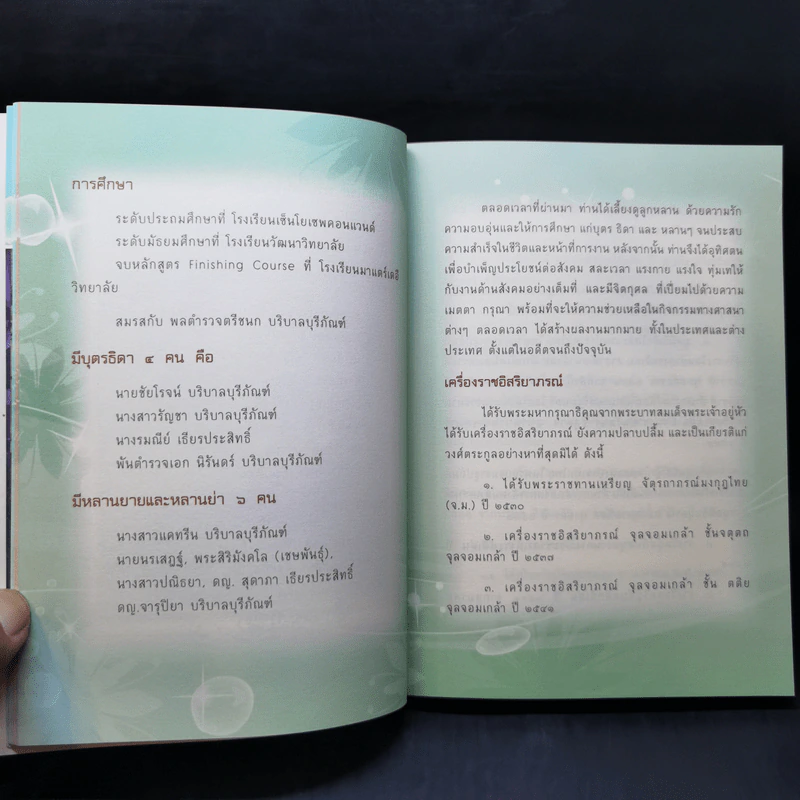 การศึกษา
ระดับประถมศึกษาที่ โรงเรียนเซ็นโยเซพคอนแวนต์
ระดับมัธยมศึกษาที่ โรงเรียนวัฒนาวิทยาลัย
จบหลักสูตร Finishing Course ที่ โรงเรียนมาแตร์เดอี
วิทยาลัย
สมรสกับ พลตำรวจตรีชนก บริบาลบุรีภัณฑ์
มีบุตรธิดา ๔ คน คือ
นายชัยโรจน์ บริบาลบุรีภัณฑ์
นางสาวรัญชา บริบาลบุรีภัณฑ์
นางรมณีย์ เธียรประสิทธิ์
พันตำรวจเอก นิรันดร์ บริบาลบุรีภัณฑ์
มีหลานยายและหลานย่า ๖ คน
นางสาวแคทรีน บริบาลบุรีภัณฑ์
นายนรเสฎฐ์, พระสิริมังคโล (เชษพันธุ์),
นางสาวปณิธยา, ดญ. สุดาภา เธียรประสิทธิ์
ดญ.จารุปิยา บริบาลบุรีภัณฑ์
ตลอดเวลาที่ผ่านมา ท่านได้เลี้ยงดูลูกหลาน ด้วยความรัก
ความอบอุ่นและให้การศึกษา แก่บุตร ธิดา และ หลานๆ จนประสบ
ความสำเร็จในชีวิตและหน้าที่การงาน หลังจากนั้น ท่านจึงได้อุทิศตน
เพื่อบำเพ็ญประโยชน์ต่อสังคม สละเวลา แรงกาย แรงใจ ทุ่มเทให้
กับงานด้านสังคมอย่างเต็มที่ และมีจิตกุศล ที่เปี่ยมไปด้วยความ
เมตตา กรุณา พร้อมที่จะให้ความช่วยเหลือในกิจกรรมทางศาสนา
ต่างๆ ตลอดเวลา ได้สร้างผลงานมากมาย ทั้งในประเทศและต่าง
ประเทศ ตั้งแต่ในอดีตจนถึงปัจจุบัน
เครื่องราชอิสริยาภรณ์
ได้รับพระมหากรุณาธิคุณจากพระบาทสมเด็จพระเจ้าอยู่หัว
ได้รับเครื่องราชอิสริยาภรณ์ ยังความปลาบปลื้ม และเป็นเกียรติแก่
วงศ์ตระกูลอย่างหาที่สุดมิได้ ดังนี้
๑. ได้รับพระราชทานเหรียญ จัตุรถาภรณ์มงกุฎไทย
(จ.ม.) ปี ๒๕๓๐
๒. เครื่องราชอิสริยาภรณ์ จุลจอมเกล้า ชั้นจตุตถ
จุลจอมเกล้า ปี ๒๕๓๗
๓. เครื่องราชอิสริยาภรณ์ จุลจอมเกล้า ชั้น ตติย
จุลจอมเกล้า ปี ๒๕๔๑